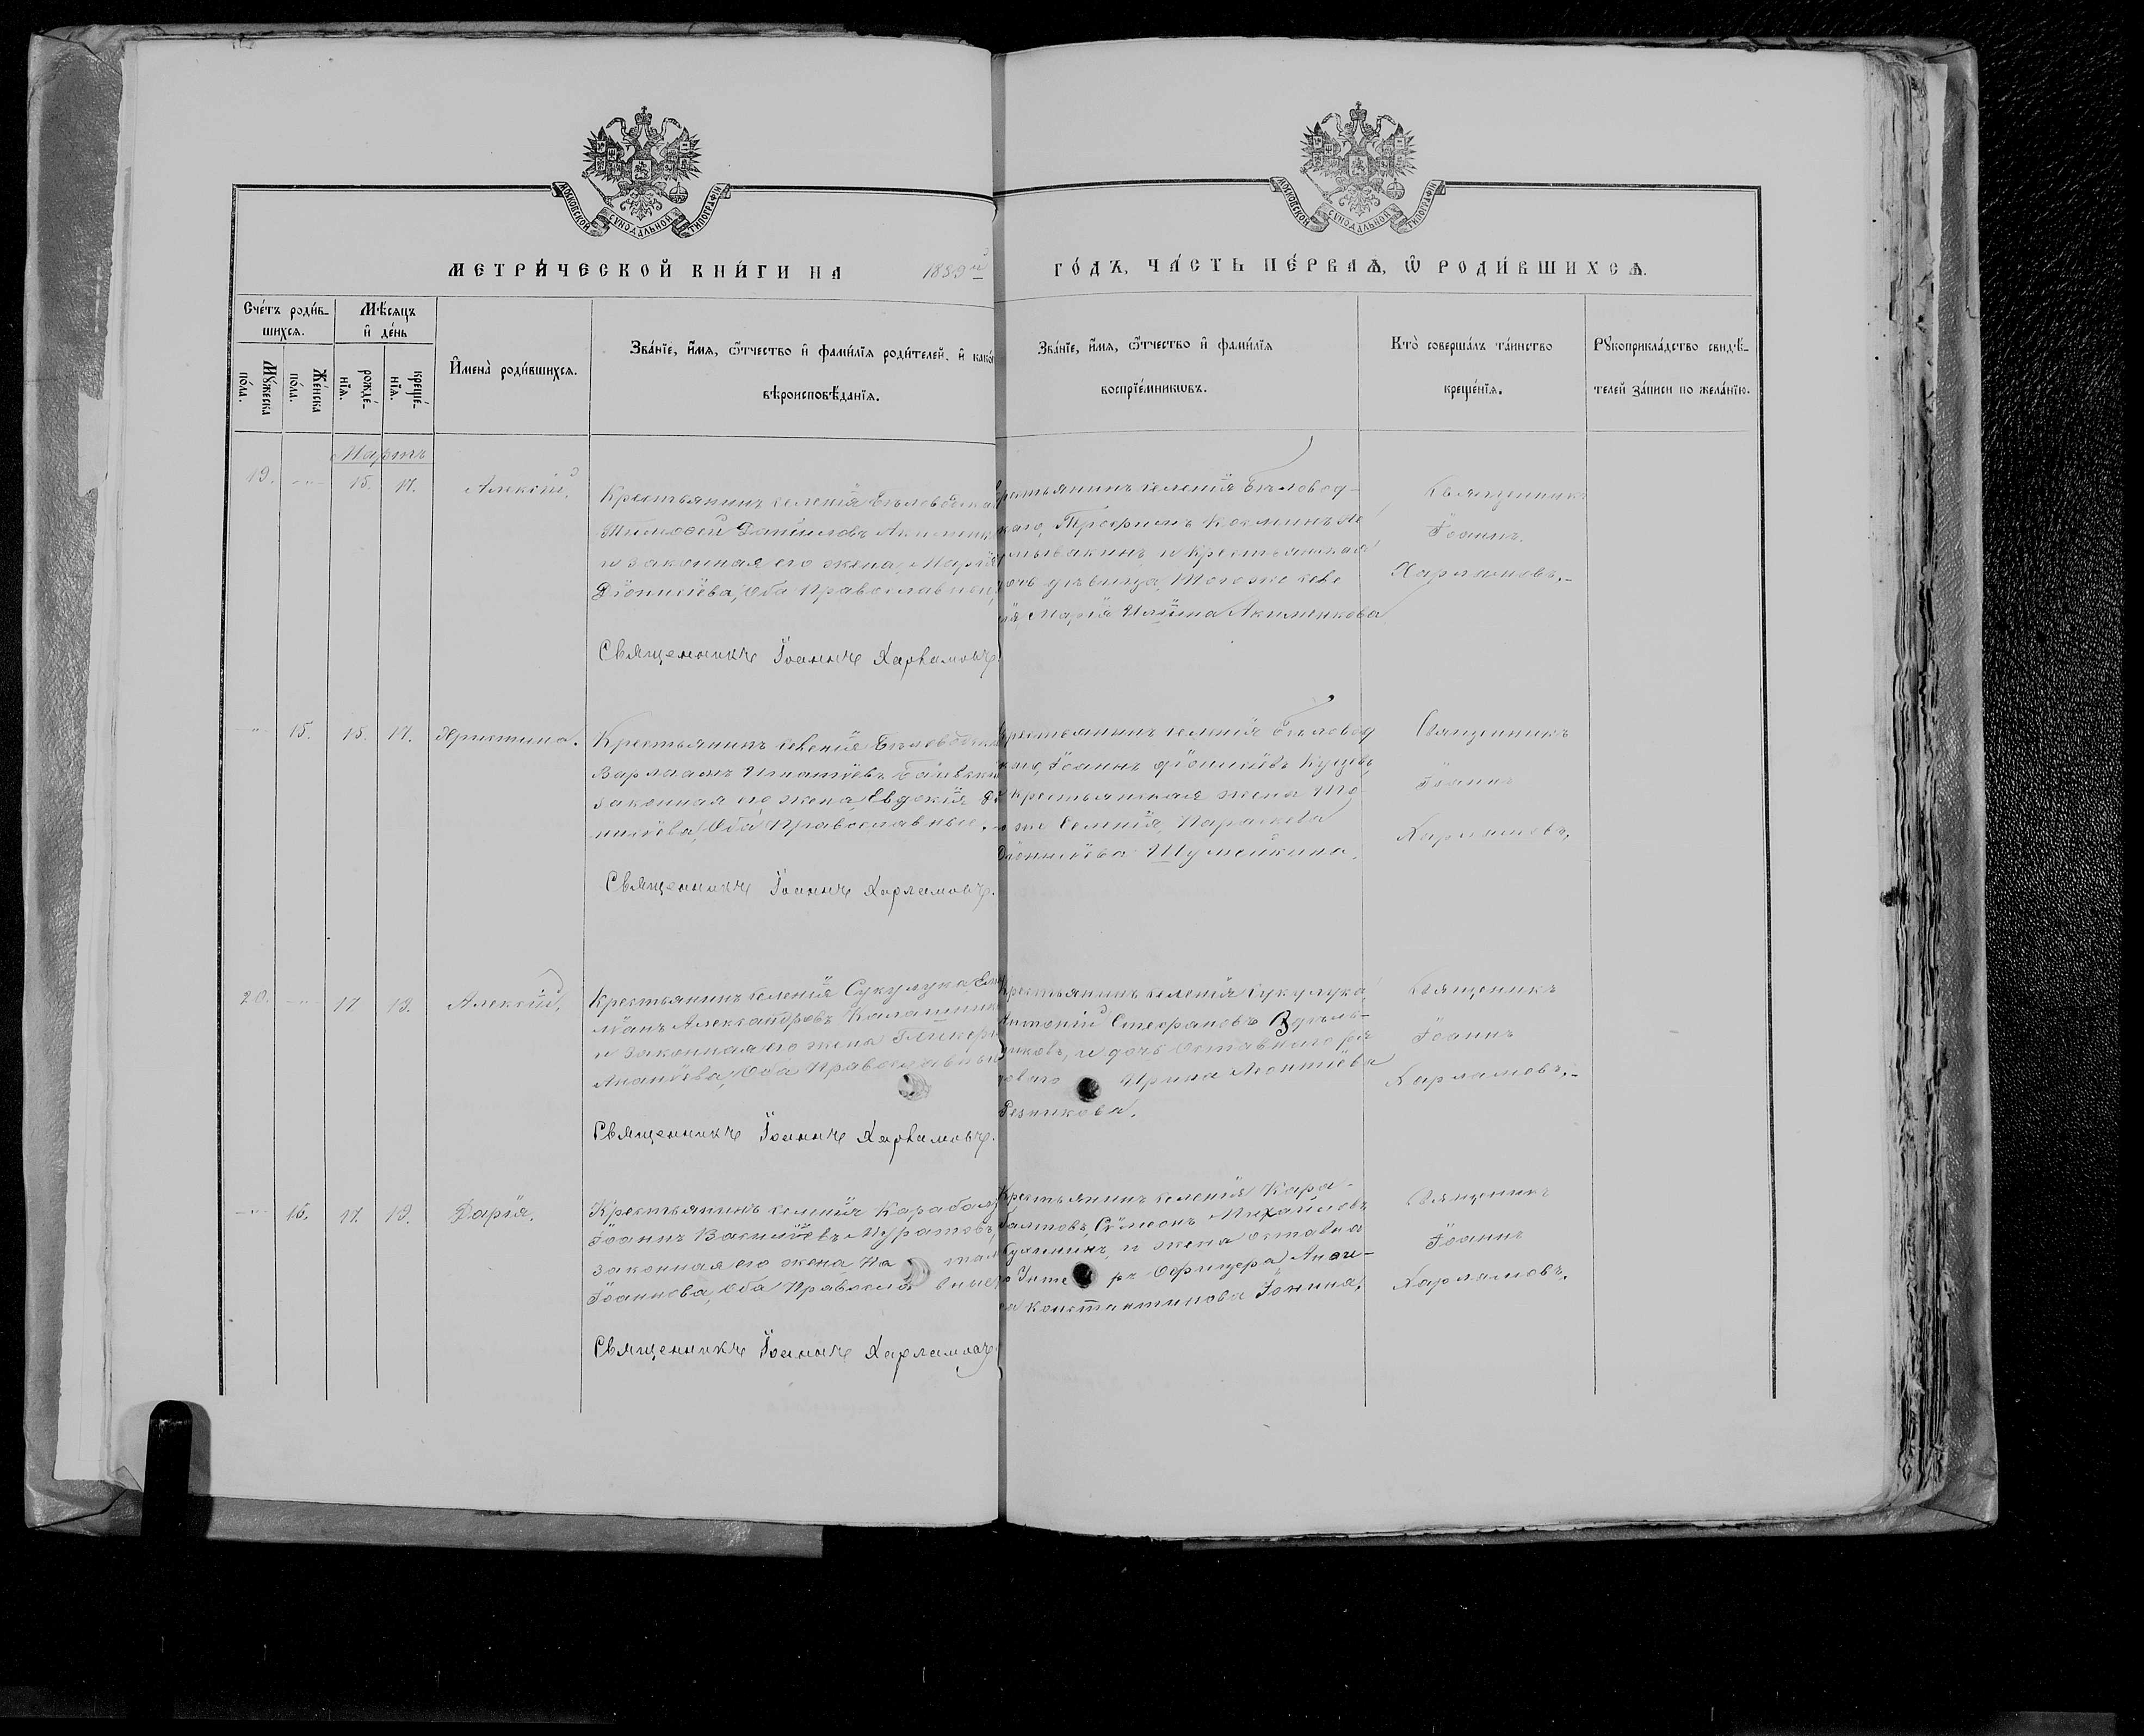 МОСКОВСКОЙ СѴНОДАЛЬНОЙ ТИПОГРАФІИ
МОСКОВСКОЙ СѴНОДАЛЬНОЙ ТИПОГРАФІИ
МЕТРИ́ЧЕСКОЙ КНИ́ГИ НА 1889й ГО́ДЪ, ЧА́СТЬ ПЕ́РВАѦ, Ѡ РОДИ́ВШИХСѦ.
Сче́тъ роди́в-
шихсѧ.
Мѣ́сяцъ
и҆ де́нь
Мꙋ́жеска
по́ла.
Же́нска
по́ла.
рожде́-
нїѧ.
креще́-
нїѧ.
И҆мена̀ роди́вшихсѧ.
Зва́нїе, и҆́мѧ, ѻ҆́тчество и҆ фами́лїѧ роди́телей, и҆ како́
вѣроисповѣ́данїѧ.
Зва́нїе, и҆́мѧ, ѻ҆́тчество и҆ фами́лїѧ
воспрїе́мникѡвъ.
Кто̀ соверша́лъ та́инство
креще́нїѧ.
Рꙋкоприкла́дство свидѣ́-
телей за́писи по жела́нїю.
Мартъ
19. -"- 15. 17. Алексій.
Крестьянинъ селенія Бѣловодска
Тимофей Даніиловъ Акименк
и законная его жена, Марія
Діонисіева, оба Православные,
Священникъ Іоаннъ Харламовъ.
рестьянинъ селенія Бѣловод-
каго, Трофимъ Косминъ Не
мывакинъ и крестьянская
дочь дѣвица, того же селе
ія, Марія Иліина Акименкова
Священникъ
Іоаннъ
Харламовъ.-
-"- 15. 15. 17. Христина.
Крестьянинъ селенія Бѣловодска
Варлаамъ Игнатіевъ
законная его жена, Евдокія Діо
нисіева, оба Православные.
Священникъ Іоаннъ Харламовъ.
рестьянинъ селенія Бѣловод
каго, Іоаннъ Діонисіевъ Куцевъ,
крестьянская жена то
о же селенія, Параскева
Діонисіева Шумейкина.
Священникъ
Іоаннъ
Харламовъ.
20. -"- 17. 19. Алексій.
Крестьянинъ селенія Сукулука, Еми
ліанъ Александровъ Калашник
и законная его жена Гликері
Ананіева, оба Православные
Священникъ Іоаннъ Харламовъ.
рестьянинъ селенія Сукулука,
Антоній Стефановъ
никовъ, и дочь отставного ря
дового Ирина Леонтіева
Резникова.
Священникъ
Іоаннъ
Харламовъ.-
-"- 16. 17. 19. Дарія.
Крестьянинъ селенія Карабалт
Іоаннъ Василіевъ Муратовъ,
законная его жена, На
Іоаннова, оба Православные
Священникъ Іоаннъ Харламовъ.
Крестьянинъ селенія Кара-
балтовъ, Сѵмеонъ Михаиловъ
и жена отставна
о Унте ръ Офицера Анфи-
са Константинова Іонина.
Священникъ
Іоаннъ
Харламовъ.